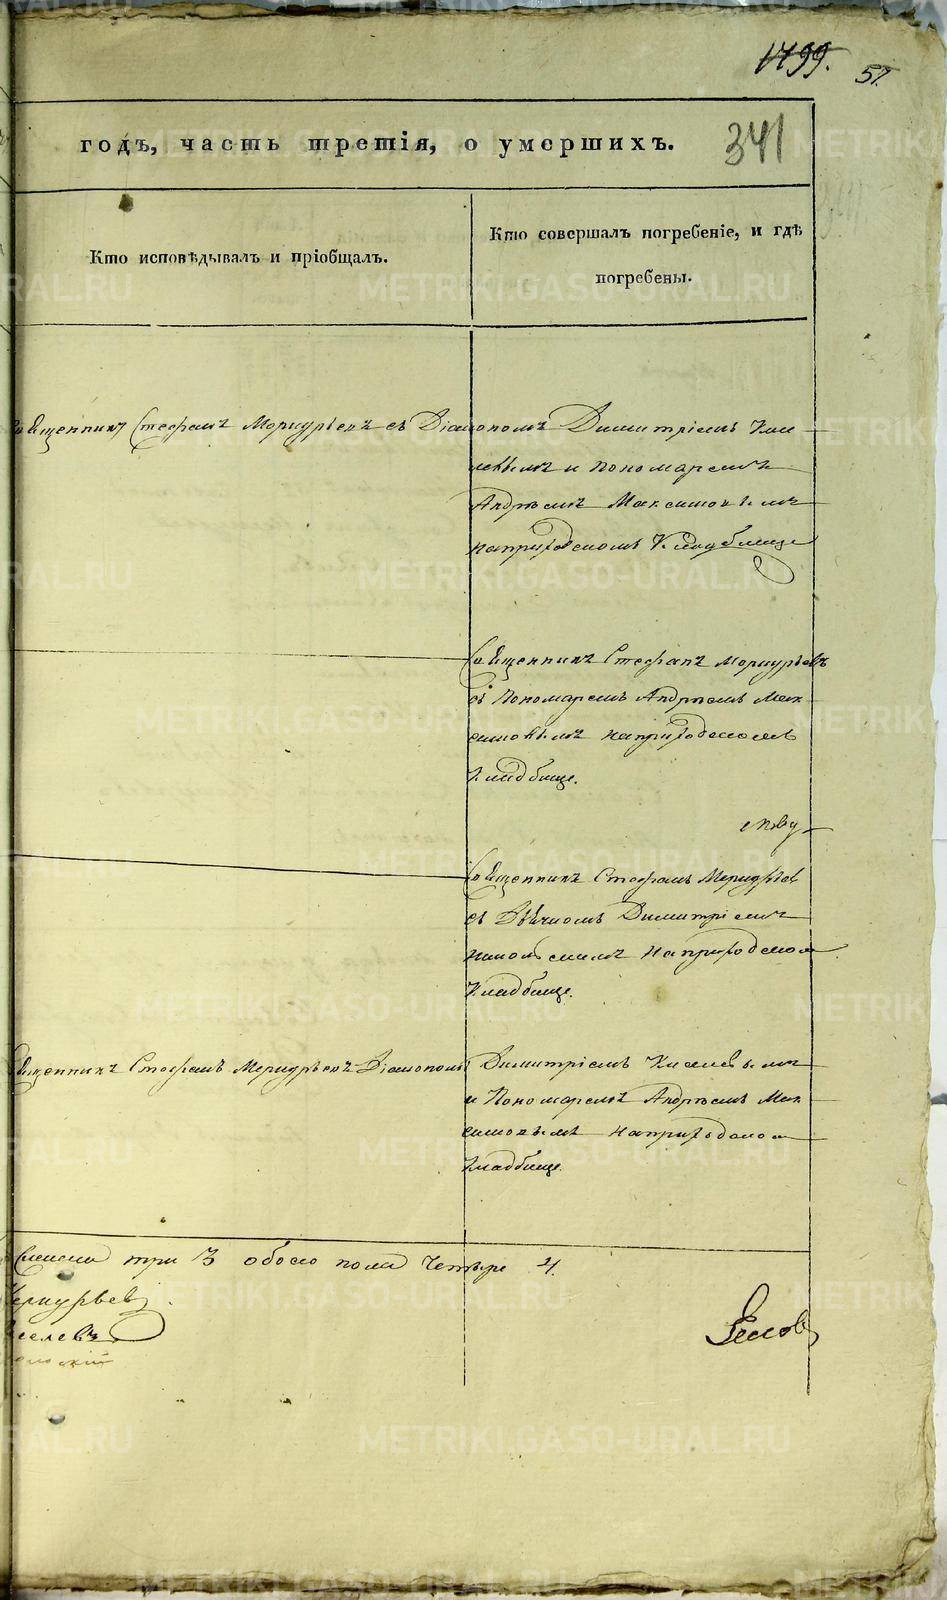 1799.
57.
341
годъ, часть третія, о умершихъ.
Кто исповѣдывалъ и пріобщалъ.
Кто совершалъ погребеніе, и гдѣ
погребены.
Священникъ Стефанъ Меркурьевъ съ Діакономъ Димитріемъ Кисе
левымъ и Пономаремъ
Андреемъ Максимовымъ
на приходскомъ Кладбище
Священникъ Стефанъ Меркурьевъ
съ Пономаремъ Андреемъ Мак
симовымъ на приходскомъ
Кладбище.
Священникъ Стефанъ Меркурьев
съ Дьячкомъ Димитріемъ
на приходском
Кладбище.
Священникъ Стефанъ Меркурьевъ Діакономъ Димитріемъ Киселевымъ
и Пономаремъ Андреемъ Мак
симовымъ на приходском
Кладбище.
три 3 обоего пола четыре 4.
Меркурьев
иселевъ
METRIKI.GASO-URAL.RU